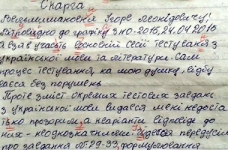 Скарга
Вельмишановний Ігоре Леонідовичу!
Відповідно до графіку ЗНО-2016, 24.04.2016
я взяв участь основній сесії тестування з
української мови та літератури. Сам
процес тестування, на мою думку, відбу
вся без порушень.
Проте зміст окремих тестових завдань
з української мови видався мені недоста
тньо прозорим, а варіанти відповіді до
них - неоднозначними. Йдеться передусім
про завдання №29-33, формулювання